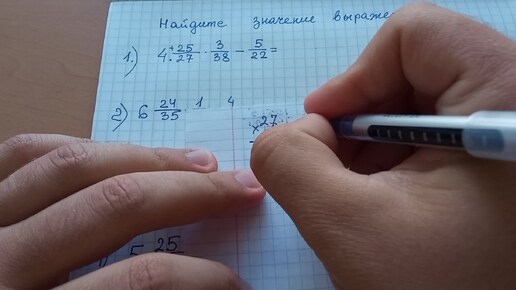 Найдите значение выраже
1.) 4 · + 25/27 · 3/38 − 5/22 =
2) 6 24/35 1 4
× 27
5 25